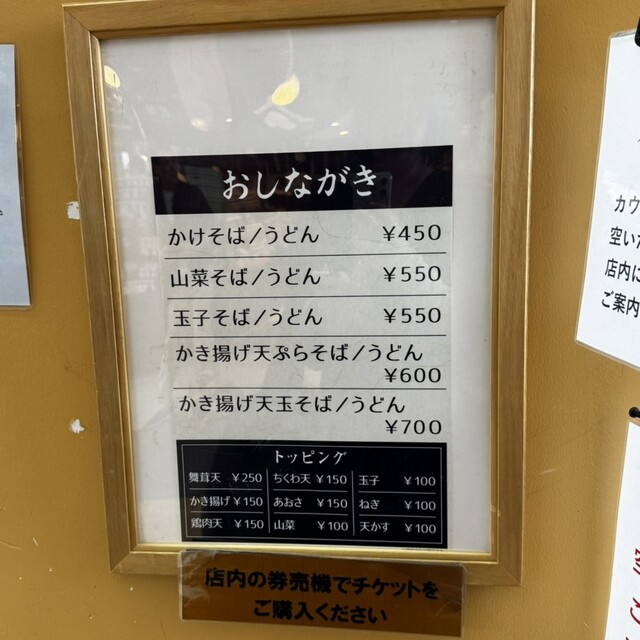 おしながき
かけそば/うどん ¥450
山菜そば/うどん ¥550
玉子そば/うどん ¥550
かき揚げ天ぷらそば/うどん
¥600
かき揚げ天玉そば/うどん
¥700
トッピング
舞茸天 ¥250 ちくわ天 ¥150 玉子 ¥100
かき揚げ ¥150 あおさ ¥150 ねぎ ¥100
鶏肉天 ¥150 山菜 ¥100 天かす ¥100
店内の券売機でチケットを
ご購入ください
カウ
空い
店内に
ご案内